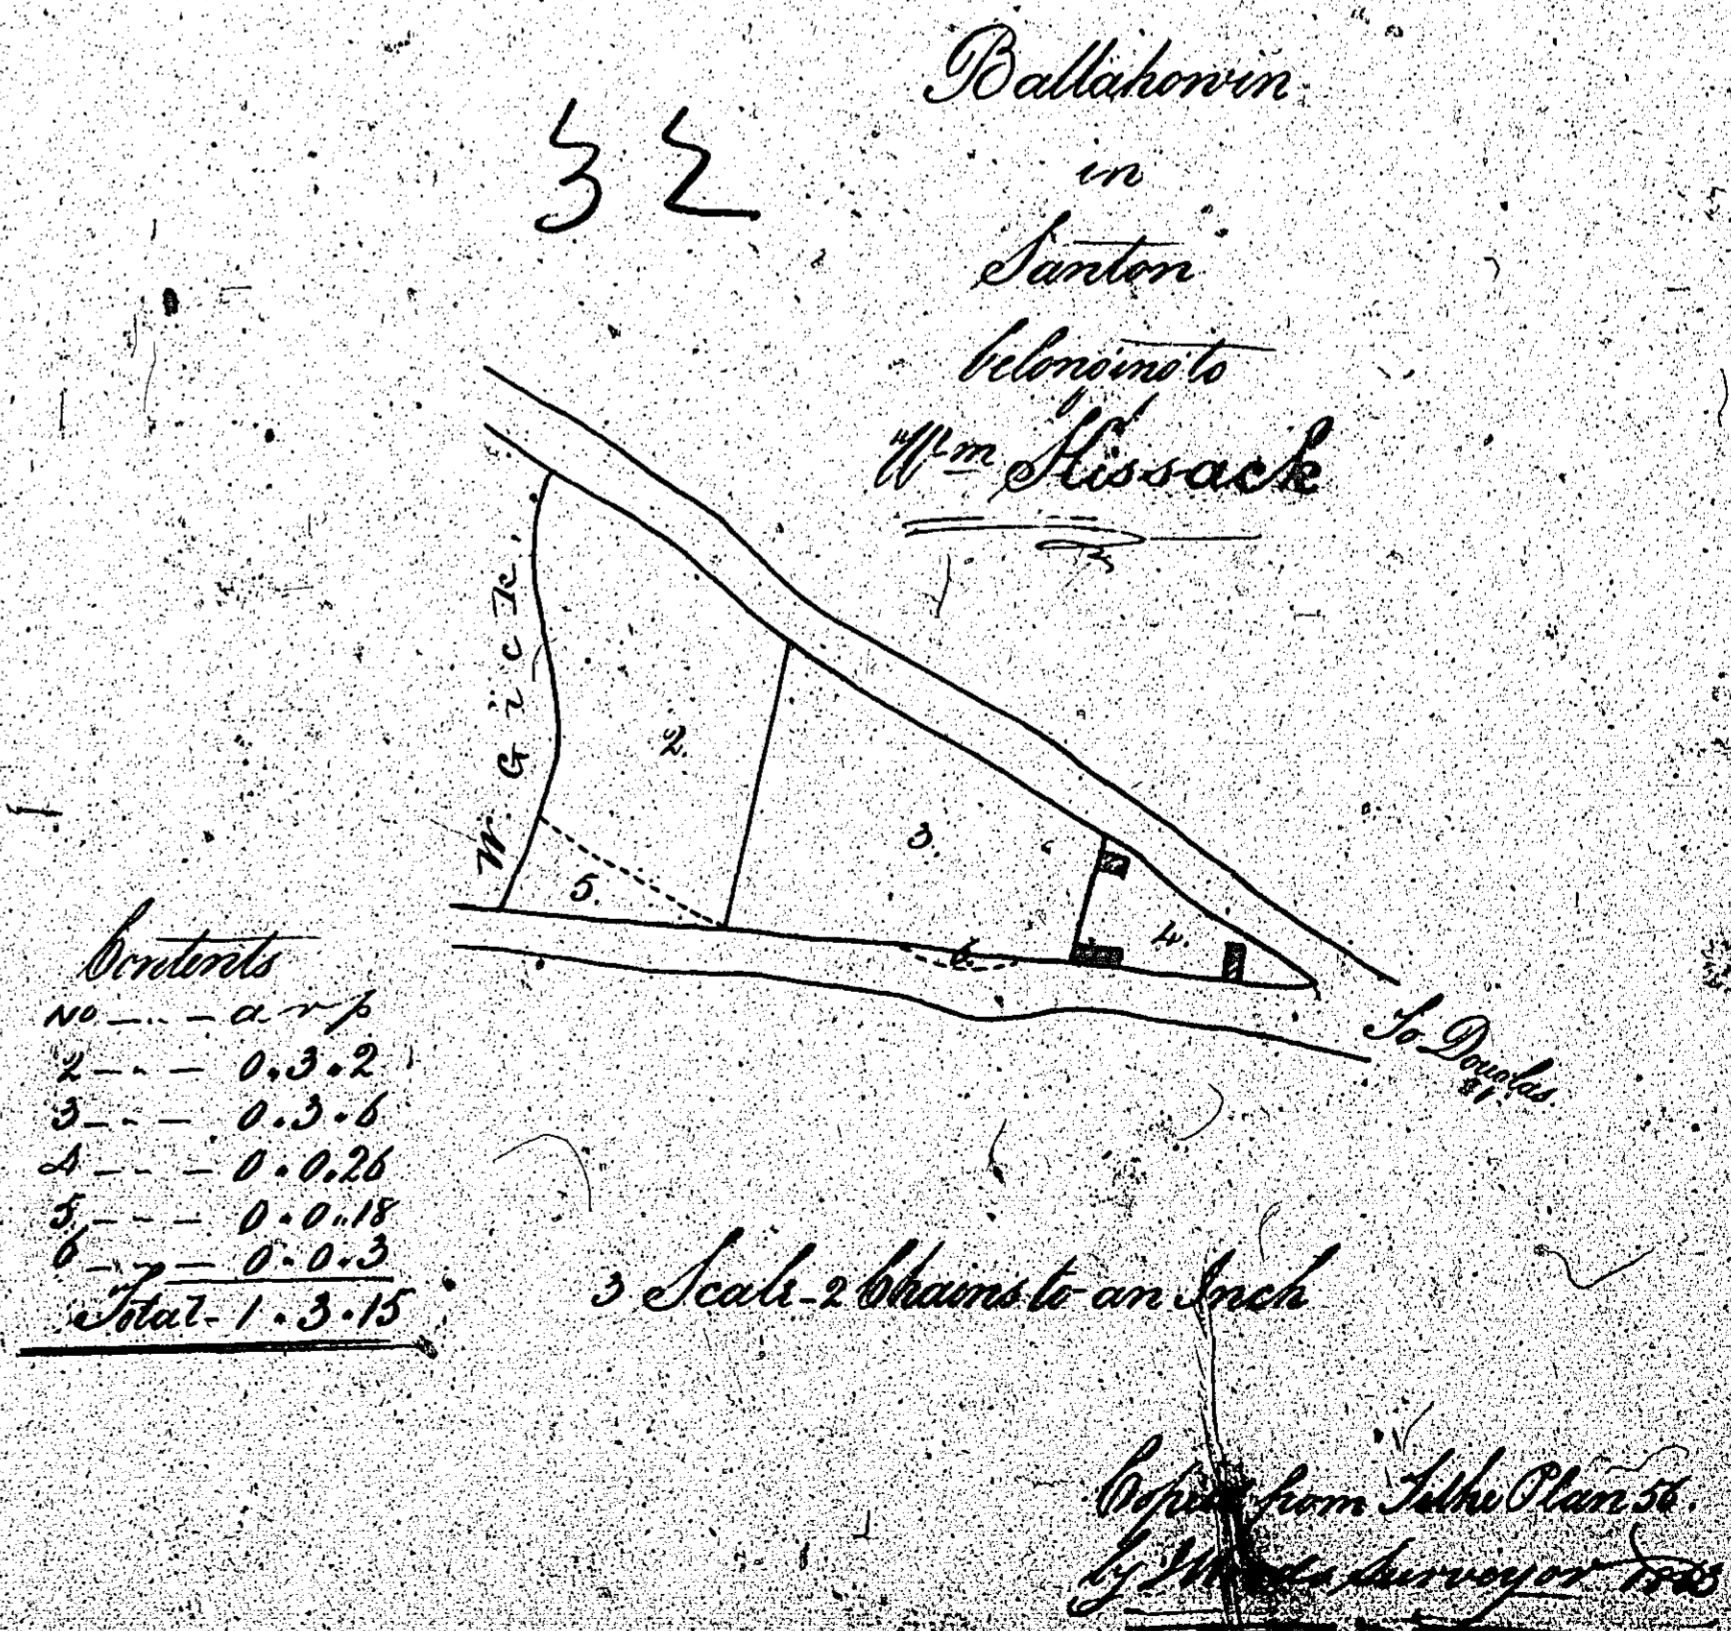 32
Ballahowin
in
Santon
belonging to
Wm Kissack
W. Gick.
2.
3.
5.
4.
6
To Douglas
Contents
No a r p
2 - - - 0.3.2
3 - - - 0.3.6
4 - - - 0.0.26
5 - - - 0.0.18
6 - - - 0.0.3
Total - 1.3.15
3 Scale - 2 Chains to an Inch
from Tithe Plan 56.
by Surveyor